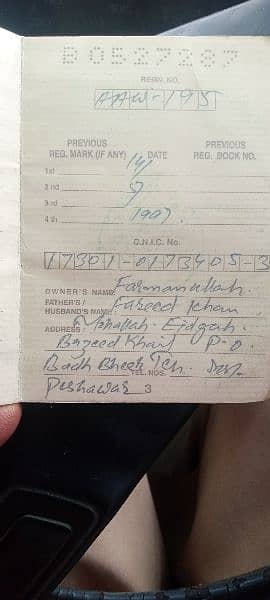 B0527287
REGN. NO.
AAW-195
PREVIOUS PREVIOUS
REG. MARK (IF ANY) DATE REG. BOOK NO.
1st
2nd
3rd
4th 1997.
C.N.I.C. No.
17301-0173405-3
OWNER'S NAME Farmanullah.
FATHER'S / HUSBAND'S NAME: Fareed Khan
ADDRESS: Mohallah Eidgah.
Bazeed Khail P-O
Badh Bheer Teh. Dist.
TEL. NOS.
Peshawar 3